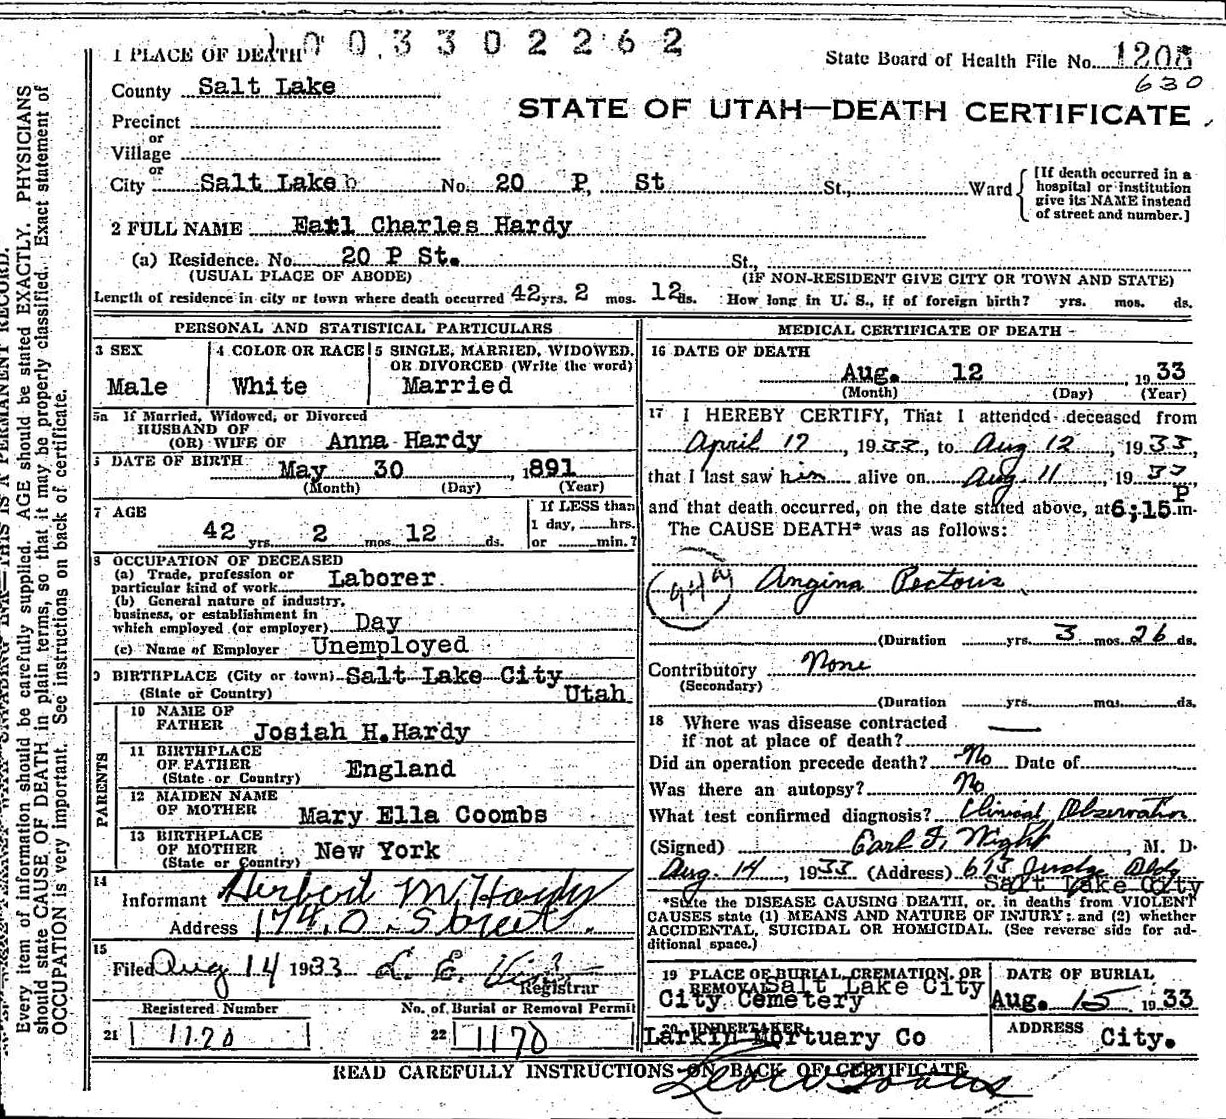 1 PLACE OF DEATH
1 0 0 3 3 0 2 2 6 2
State Board of Health File No. 1208
630
County Salt Lake
STATE OF UTAH—DEATH CERTIFICATE
Precinct
or
Village
or
City Salt Lake No. 20 P, St St., Ward
[If death occurred in a
hospital or institution
give its NAME instead
of street and number.]
2 FULL NAME Earl Charles Hardy
(a) Residence. No. 20 P St. St.,
(USUAL PLACE OF ABODE) (IF NON-RESIDENT GIVE CITY OR TOWN AND STATE)
Length of residence in city or town where death occurred 42 yrs. 2 mos. 12 ds. How long in U. S., if of foreign birth? yrs. mos. ds.
PERSONAL AND STATISTICAL PARTICULARS
3 SEX
Male
4 COLOR OR RACE
White
5 SINGLE, MARRIED, WIDOWED,
OR DIVORCED (Write the word)
Married
5a If Married, Widowed, or Divorced
HUSBAND OF
(OR) WIFE OF Anna Hardy
DATE OF BIRTH
May 30, 1891
(Month) (Day) (Year)
7 AGE
42 yrs. 2 mos. 12 ds.
If LESS than
1 day, hrs.
or min.?
8 OCCUPATION OF DECEASED
(a) Trade, profession or
particular kind of work Laborer.
(b) General nature of industry,
business, or establishment in
which employed (or employer) Day
(c) Name of Employer Unemployed
9 BIRTHPLACE (City or town) Salt Lake City
(State or Country) Utah
PARENTS
10 NAME OF
FATHER Josiah H.Hardy
11 BIRTHPLACE
OF FATHER
(State or Country) England
12 MAIDEN NAME
OF MOTHER Mary Ella Coombs
13 BIRTHPLACE
OF MOTHER
(State or Country) New York
14
Informant Herbert M. Hardy
Address 174 O Street.
15
Filed Aug 14 1933 L. E.
Registrar
Registered Number
21 1170
No. of Burial or Removal Permit
22 1170
MEDICAL CERTIFICATE OF DEATH
16 DATE OF DEATH
Aug. 12, 1933
(Month) (Day) (Year)
17 I HEREBY CERTIFY, That I attended deceased from
April 17, 1933, to Aug 12, 1933,
that I last saw him alive on Aug 11, 1933
and that death occurred, on the date stated above, at 6;15 P m.
The CAUSE DEATH* was as follows:
94a Angina Pectoris
(Duration yrs. 3 mos. 26 ds.
Contributory None
(Secondary)
(Duration yrs. mos. ds.
18 Where was disease contracted
if not at place of death?
Did an operation precede death? No Date of
Was there an autopsy? No
What test confirmed diagnosis? Clinical Observation
(Signed) Earl F. Wight, M. D.
Aug. 14, 1933 (Address) 613 Judge Bldg
Salt Lake City
*State the DISEASE CAUSING DEATH, or in deaths from VIOLENT
CAUSES state (1) MEANS AND NATURE OF INJURY; and (2) whether
ACCIDENTAL, SUICIDAL OR HOMICIDAL. (See reverse side for ad-
ditional space.)
19 PLACE OF BURIAL, CREMATION, OR
REMOVAL Salt Lake City
City Cemetery
DATE OF BURIAL
Aug. 15 1933
20 UNDERTAKER
Larkin Mortuary Co
ADDRESS
City.
READ CAREFULLY INSTRUCTIONS ON BACK OF CERTIFICATE
THIS IS A PERMANENT RECORD.
Every item of information should be carefully supplied. AGE should be stated EXACTLY. PHYSICIANS
should state CAUSE OF DEATH in plain terms, so that it may be properly classified. Exact statement of
OCCUPATION is very important. See instructions on back of certificate.